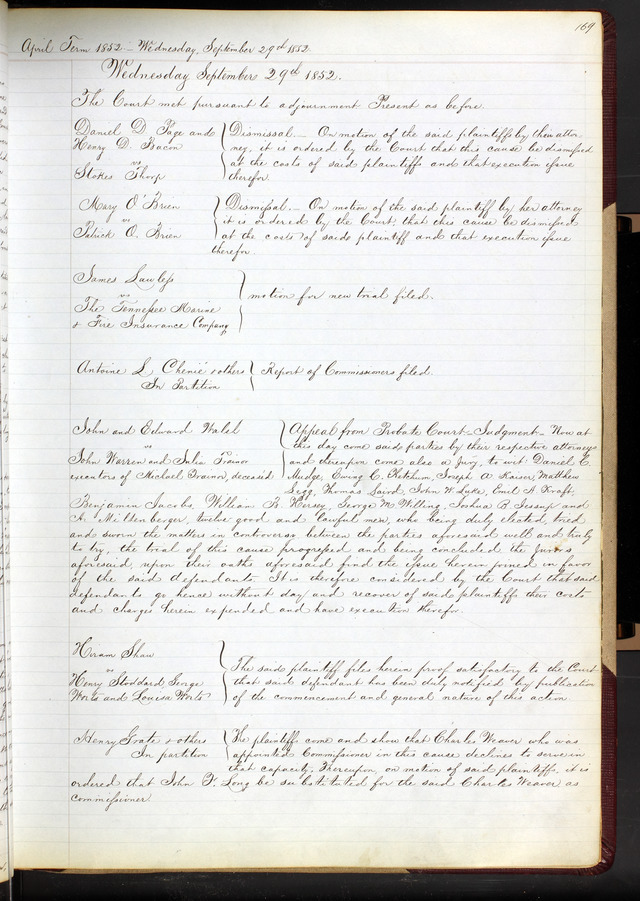 169
April Term 1852 – Wednesday, September 29th 1852.
Wednesday September 29th 1852.
The Court met pursuant to adjournment Present as before.
Daniel D. Page and
Henry D. Bacon
vs
Stokes Thorp
Dismissal – On motion of the said plaintiffs by their attor
ney. it is ordered by the Court that this cause be dismissed
at the costs of said plaintiffs and that execution issue
therefor.
Mary O Brien
vs
Patrick O. Brien
Dismissal. – On motion of the said plaintiff by her attorney
it is ordered by the Court, that this cause be dismissed
at the costs of said plaintiff and that execution issue
therefor.
James Lawless
vs
The Tennessee Marine
& Fire Insurance Company
motion for new trial filed.
Antoine L Chenie & others
In Partition
Report of Commissioners filed.
John and Edward Walsh
vs
John Warren and Julia Trainor
executors of Michael Trainor, deceased
Appeal from Probate Court – Judgment – Now at
this day come said parties by their respective attorneys
and thereupon come also a Jury, to wit: Daniel E.
Mudge, Ewing C. Ketchum, Joseph A Kaiser, Matthew
Thomas Laird, John W. Luke, Emil H Kraft,
Benjamin Jacobs, William B. Hersey, George M. Willing, Joshua B. Jessup and
A. Miltenberger, twelve good and lawful men, who being duly elected, tried
and sworn the matters in controversy between the parties aforesaid well and truly
to try, the trial of this cause progressed and being concluded the Jurors
aforesaid, upon their oaths aforesaid find the issue herein joined in favor
of the said defendants. It is therefore considered by the Court that said
defendants go hence without day and recover of said plaintiffs their costs
and charges herein expended and have execution therefor.
Hiram Shaw
vs
Henry Stoddard, George
Worts and Louisa Worts
The said plaintiff files herein proof satisfactory to the Court
that said defendant has been duly notified by publication
of the commencement and general nature of this action.
Henry Grote & others
In partition
The plaintiffs come and show that Charles Weaver who was
appointed Commissioner in this cause declines to serve in
that capacity, Thereupon, on motion of said plaintiffs, it is
ordered that John F. Long be substituted for the said Charles Weaver as
commissioner.